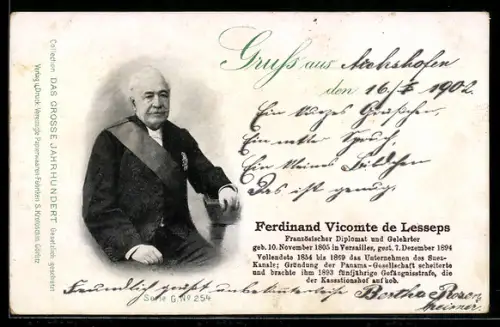 Collection DAS GROSSE JAHRHUNDERT Gesetzlich geschützt
Verlag u. Druck Vereinigte Papierwaaren-Fabriken S. Krotoschin, Görlitz
Gruß aus
den 16/I 1902.
Ein kurzes Grüßchen,
Ein netter Spruch,
Ein kleines Bildchen
Das ist genug.
Ferdinand Vicomte de Lesseps
Französischer Diplomat und Gelehrter
geb. 10. November 1805 in Versailles, gest. 7. Dezember 1894
Vollendete 1854 bis 1869 das Unternehmen des Suez-
Kanals; Gründung der Panama-Gesellschaft scheiterte
und brachte ihm 1893 fünfjährige Gefängnisstrafe, die
der Kassationshof aufhob.
Freundlich grüßt unbekannterweise
Bertha Rosen
heimer.
Serie G. No 254